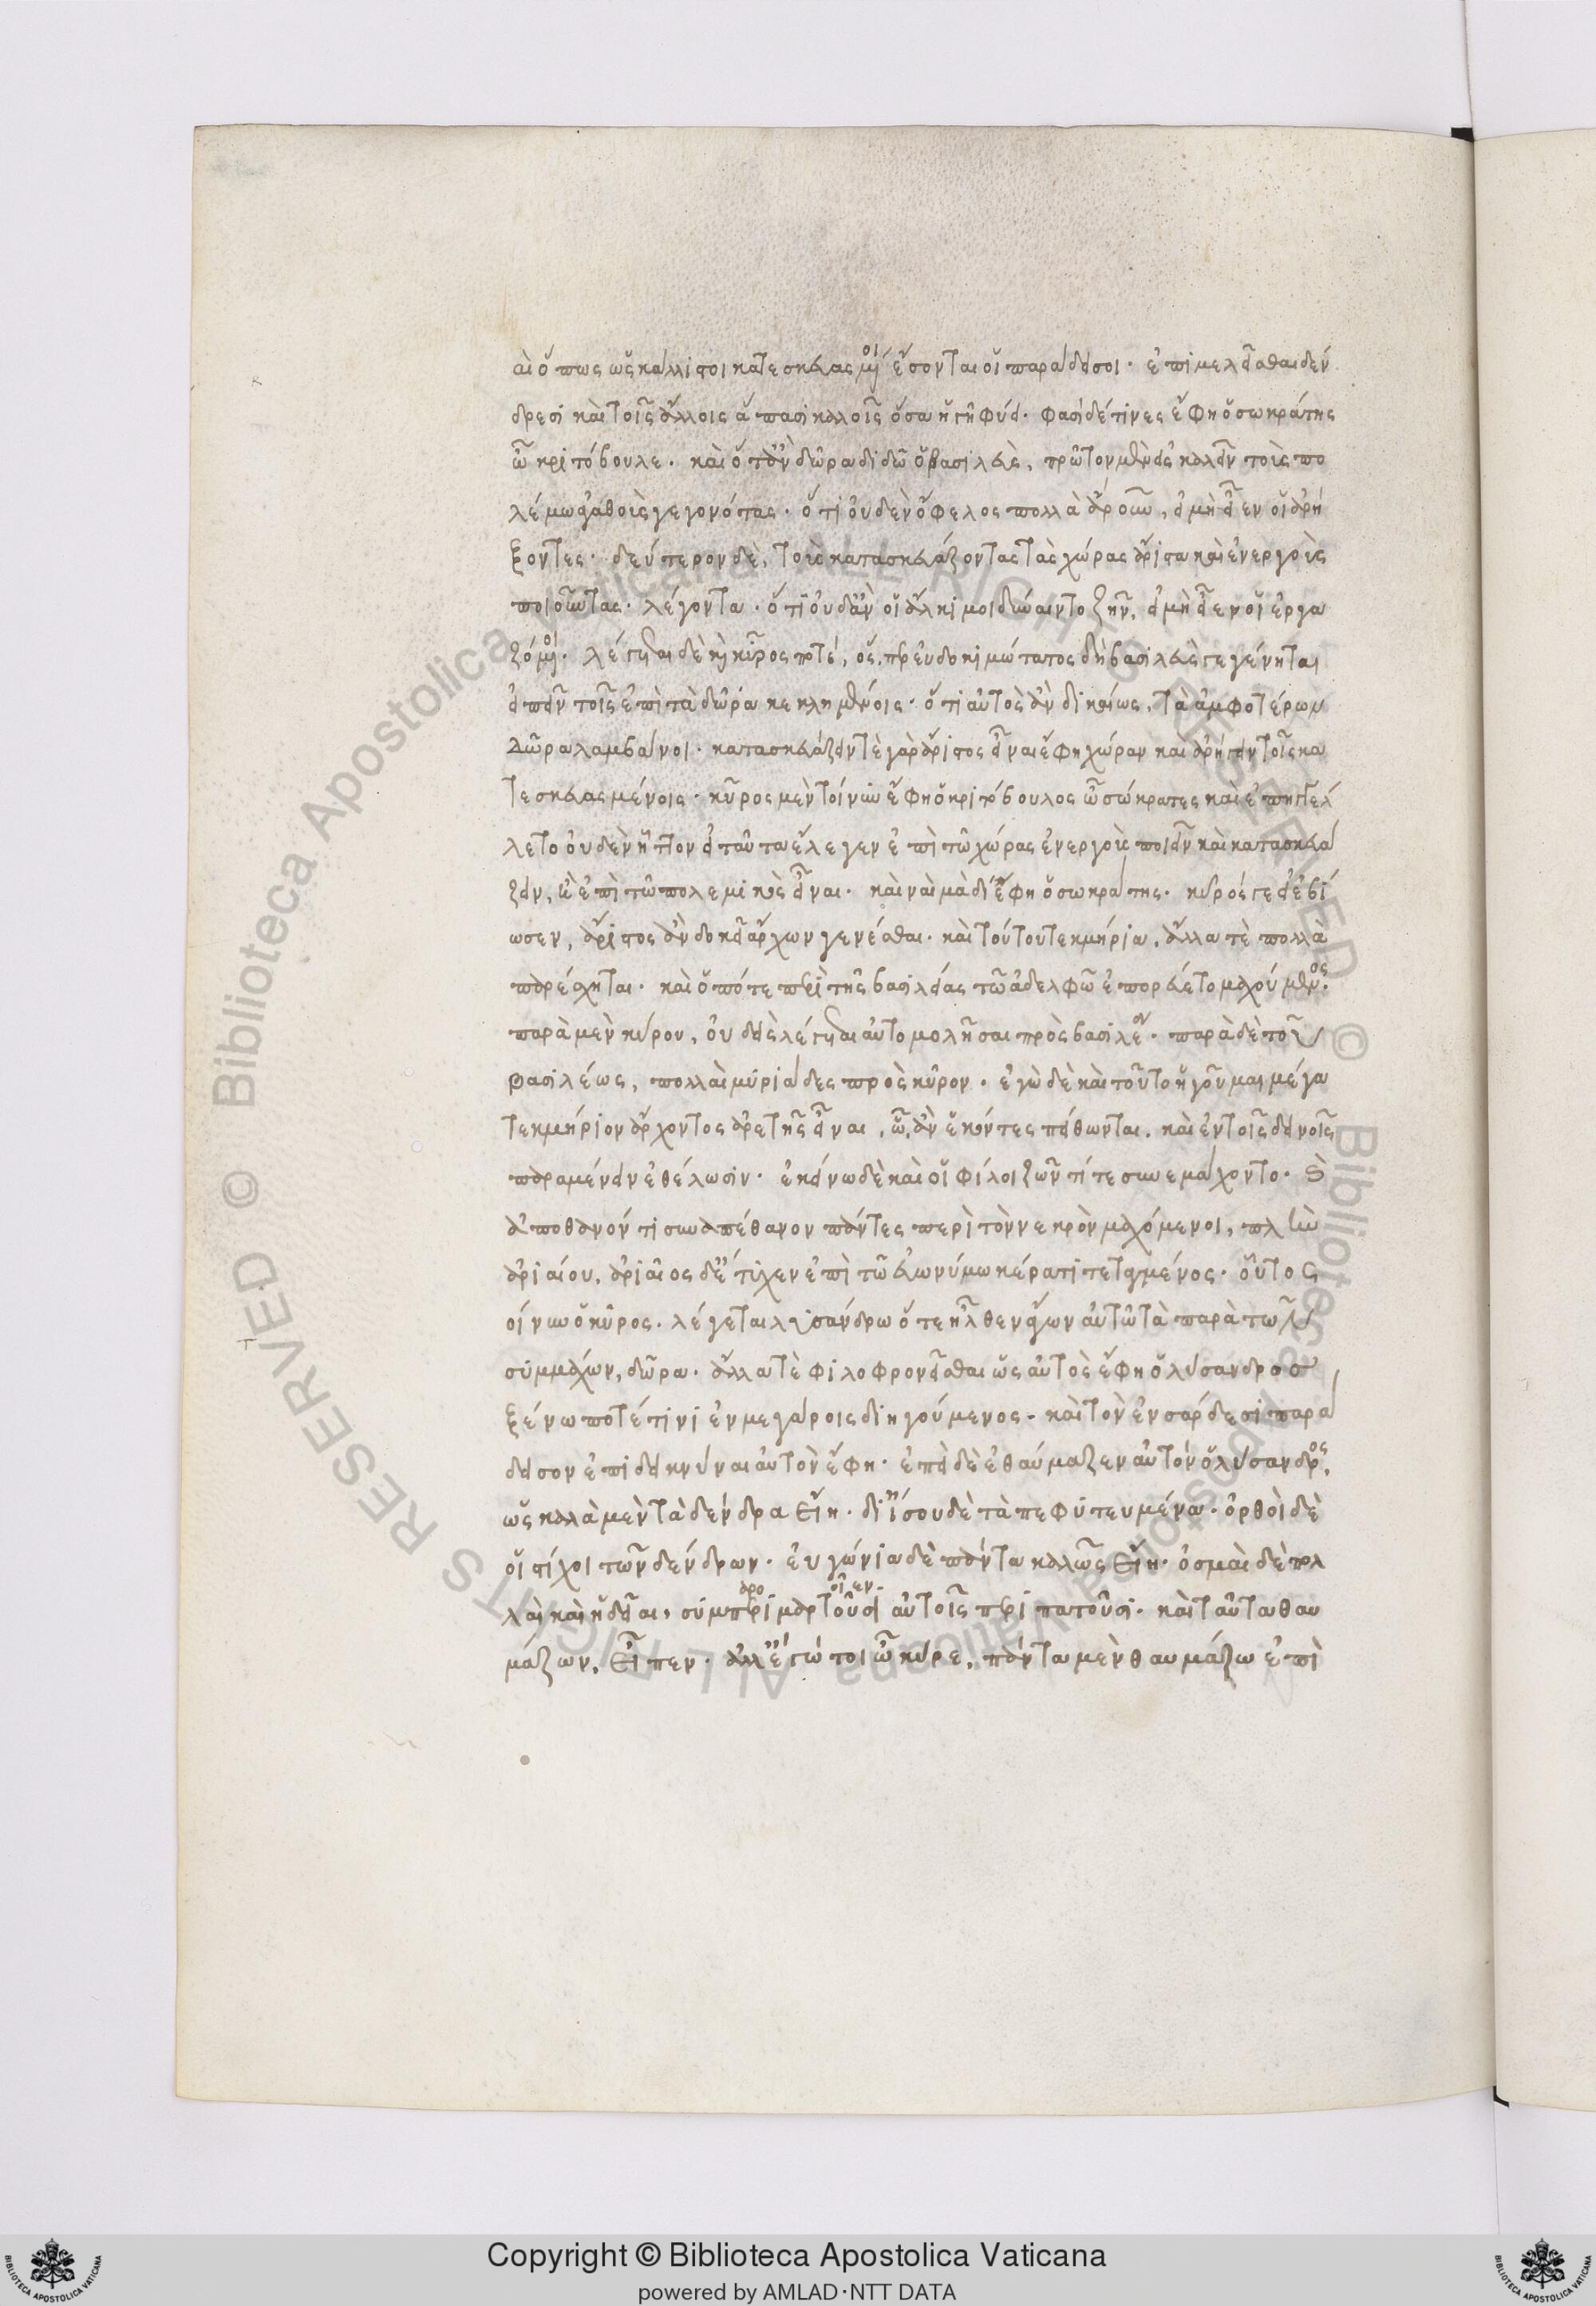 αὶ ὅπως ὡς κάλλιστοι κατεσκευασμένοι ἔσονται οἱ παράδεισοι· ἐπιμελεῖσθαι δέν
δρεσι καὶ τοῖς ἄλλοις ἅπασι καλοῖς ὅσα ἡ γῆ φύει· φασὶ δέ τινες ἔφη ὁ σωκράτης
ὦ κριτόβουλε· καὶ ὅταν δῶρα διδῷ ὁ βασιλεὺς, πρῶτον μὲν εἰσκαλεῖν τοὺς πο
λέμῳ ἀγαθοὺς γεγονότας· ὅτι οὐδὲν ὄφελος πολλὰ ἀροῦν, εἰ μὴ εἶεν οἱ ἀρή
ξοντες· δεύτερον δὲ, τοὺς κατασκευάζοντας τὰς χώρας ἄριστα καὶ ἐνεργοὺς
ποιοῦντας· λέγοντα· ὅτι οὐδ' ἂν οἱ ἄλκιμοι δύναιντο ζῆν, εἰ μὴ εἶεν οἱ ἐργα
ζόμενοι· λέγεται δὲ καὶ κῦρος ποτέ, ὅσπερ εὐδοκιμώτατος δὴ βασιλεὺς γεγένηται
εἰπεῖν τοῖς ἐπὶ τὰ δῶρα κεκλημένοις· ὅτι αὐτὸς ἂν δικαίως, τὰ ἀμφοτέρων
δῶρα λαμβάνοι· κατασκευάζειν τὲ γὰρ ἄριστος εἶναι ἔφη χώραν καὶ ἀρήγειν τοῖς κα
τεσκευασμένοις· κῦρος μὲν τοίνυν ἔφη ὁ κριτόβουλος ὦ σώκρατες καὶ ἐπηγγέλ
λετο οὐδὲν ἧττον εἰ ταῦτα ἔλεγεν ἐπὶ τῶ χώρας ἐνεργοὺς ποιεῖν καὶ κατασκευά
ζειν, ἢ ἐπὶ τῶ πολεμικὸς εἶναι· καὶ ναὶ μὰ δί' ἔφη ὁ σωκράτης· κῦρός γε εἰ ἐβί
ωσεν, ἄριστος ἂν δοκεῖ ἄρχων γενέσθαι· καὶ τούτου τεκμήρια, ἄλλα τὲ πολλὰ
παρέσχηται· καὶ ὁπότε περὶ τῆς βασιλείας τῶ ἀδελφῶ ἐπορεύετο μαχούμενος·
παρὰ μὲν κύρου, οὐδεὶς λέγεται αὐτομολῆσαι πρὸς βασιλέα· παρὰ δὲ τοῦ
βασιλέως, πολλαὶ μυριάδες πρὸς κῦρον· ἐγὼ δὲ καὶ τοῦτο ἡγοῦμαι μέγα
τεκμήριον ἄρχοντος ἀρετῆς εἶναι, ὧ ἂν ἑκόντες πείθωνται, καὶ ἐν τοῖς δεινοῖς
παραμένειν ἐθέλωσιν· ἐκείνω δὲ καὶ οἱ φίλοι ζῶντί τε συνεμάχοντο· καὶ
ἀποθανόντι συναπέθανον πάντες περὶ τὸν νεκρὸν μαχόμενοι, πλὴν
ἀριαίου, ἀριαῖος δ' ἔτυχεν ἐπὶ τῶ εὐωνύμω κέρατι τεταγμένος· οὗτος
οίνυν ὁ κῦρος· λέγεται λυσάνδρω ὅτε ἦλθεν ἄγων αὐτῶ τὰ παρὰ τῶν
συμμάχων, δῶρα· ἄλλα τὲ φιλοφρονεῖσθαι ὡς αὐτὸς ἔφη ὁ λύσανδρος
ξένω ποτέ τινι ἐν μεγάροις διηγούμενος· καὶ τὸν ἐν σάρδεσι παρά
δεισον ἐπιδεικνύναι αὐτὸν ἔφη· ἐπεὶ δὲ ἐθαύμαζεν αὐτὸν ὁ λύσανδρος,
ὡς καλὰ μὲν τὰ δένδρα εἴη· δι' ἴσου δὲ τὰ πεφυτευμένα· ὀρθοὶ δὲ
οἱ στίχοι τῶν δένδρων· εὐγώνια δὲ πάντα καλῶς εἴη· ὀσμαὶ δὲ πολ
λαὶ καὶ ἡδεῖαι, αὐτοῖς περιπατοῦσι· καὶ ταῦτα θαυ
μάζων, εἶπεν· ἀλλ' ἐγώ τοι ὦ κῦρε, πάντα μὲν θαυμάζω ἐπὶ
Copyright © Biblioteca Apostolica Vaticana
powered by AMLAD·NTT DATA